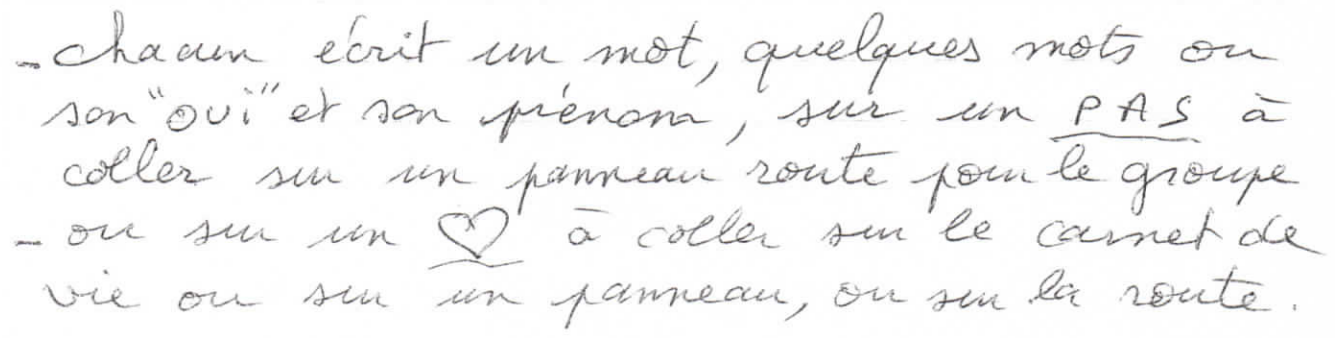 - chacun écrit un mot, quelques mots ou
son "oui" et son prénom, sur un PAS à
coller sur un panneau route pour le groupe
- ou sur un ♡ à coller sur le carnet de
vie ou sur un panneau, ou sur la route.